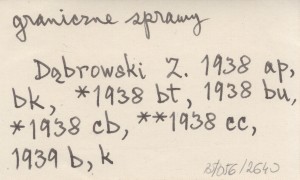 graniczne sprawy
Dąbrowski Z. 1938 ap,
bk, *1938 bt, 1938 bu,
*1938 cb, **1938 cc,
1939 b, k